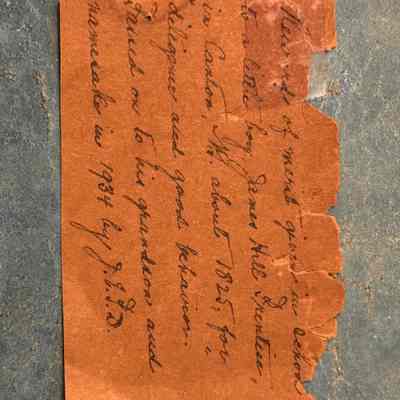 Rewards of merit given in school
to a little boy, James Hill
in Canton, about 1825, for
diligence and good behavior.
Passed on to his grandson and
namesake in 1934 by